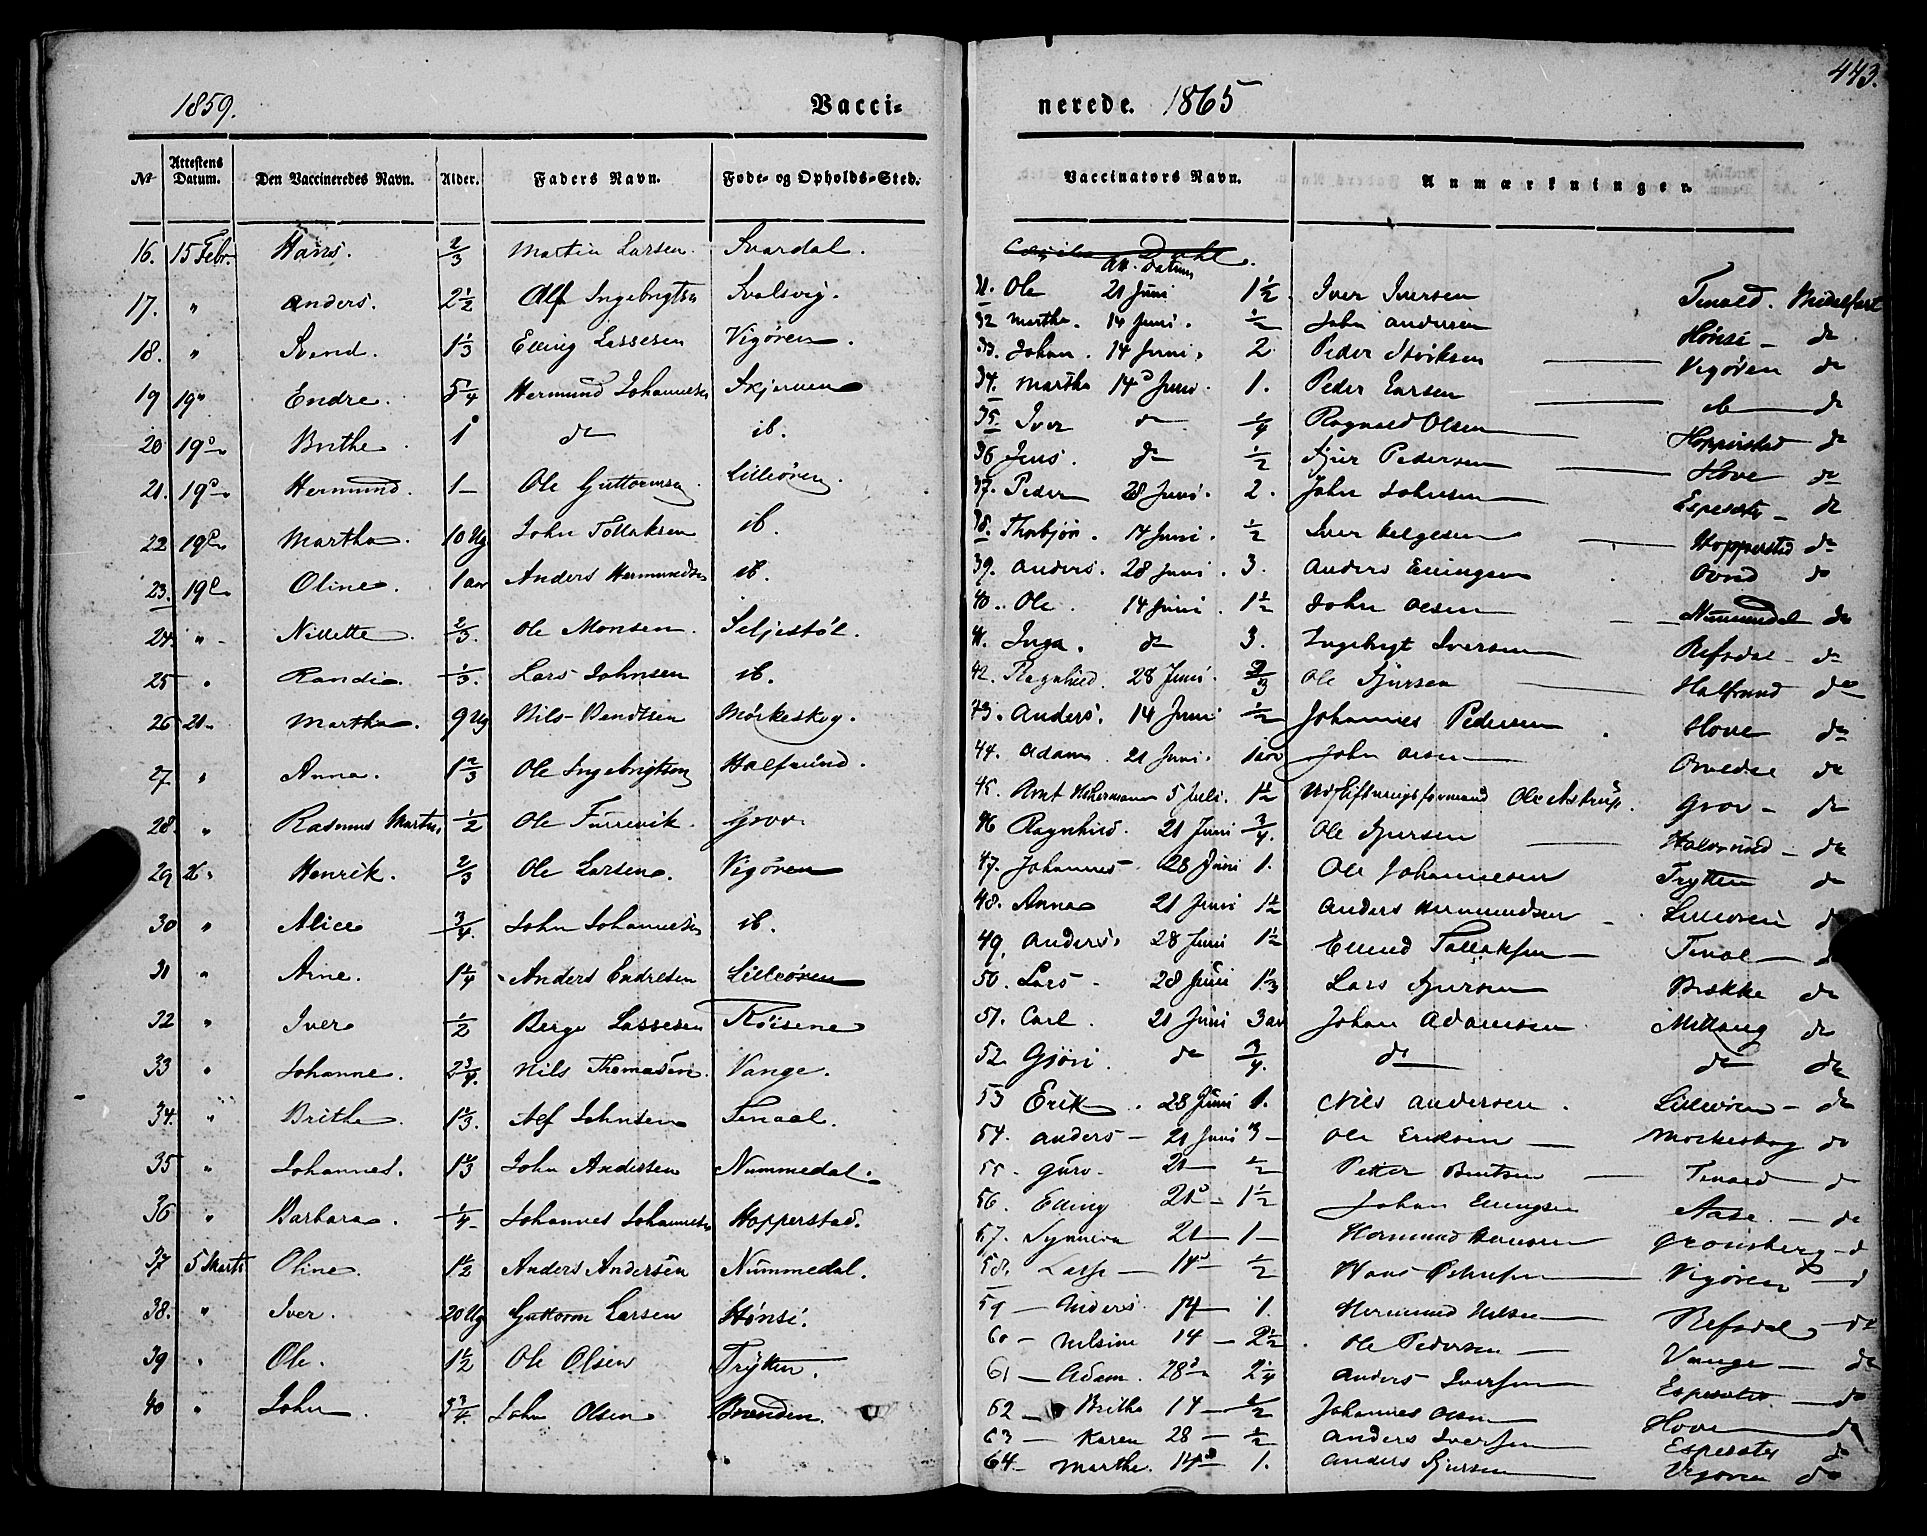 443.
1859. Vacci-
№ Attestens Datum. Den Vaccineredes Navn. Alder. Faders Navn. Føde- og Opholds-Sted.
16. 15 Febr. Hans. 2/3 Martin Larsen. Svardal.
17. " Anders. 2 1/2 Alf Ingebrigtsn Svalsvig.
18. " Svend. 1 1/3 Elling Lassesen Vigøren.
19 19 " Endre. 5/4 Hermund Johannesen Skjerven
20 19 Brithe 1 do ib.
21. 19 Hermund. 1 - Ole Guttormsen Lilleøren.
22 19 Martha. 10 Ug John Tollaksen ib.
23. 19 Oline. 1 aar Anders Hermundsen ib.
24. " Nillette. 2/3. Ole Monsen. Seljestøl.
25 " Randi. 1/3. Lars Johnsen ib.
26 21 " Martha. 9 Ug Nils Bendtsen Mörkeskog.
27 " Anna. 1 2/3 Ole Ingebrigtsen Halfrund.
28. " Rasmus Martin 1/2 Ole Furevik. Grov.
29 26 " Henrik. 2/3 Ole Larsen. Vigøren
30 " Alice 3/4. John Johannesen ib.
31 " Arne. 1 1/4 Anders Endresen Lilleøren
32 " Iver 1/2 Berge Lassesen Röisene
33 " Johanne. 2 3/4. Nils Thomassen. Vange.
34. " Brithe 1 1/3. Alf Johnsen Tenaal.
35 " Johannes. 1 1/3 John Andersen Nummedal.
36 " Barbara. 1/4 Johannes Johannesen Hopperstad.
37 5 Marts Oline. 1 1/2 Anders Andersen Nummedal.
38. " Iver. 20 Ug Guttorm Larsen Hønsi.
39 " Ole. 1 1/2 Ole Olsen Trÿtten.
40 " John. 3 3/4 John Olsen Brenden.
nerede. 1865
Vaccinators Navn. Anmærkninger.
Dahl.
Att. Datum
31. Ole 21 Juni 1 1/2. Iver Iversen Tenald. Midelfart
32 Martha. 14 Juni. 1/2 John Andersen Hønsi - do
33. Johan. 14 Juni. 2 Peder Størksen Vigøren do
34. Martha 14 Juni. 1. Peder Larsen ib do
35 Iver do 1/4 Ragnald Olsen Hopperstad do
36 Jens. do 1/2 Sjur Pedersen Hove do
37. Peder 28 Juni. 2. John Johnsen Esperete - do
38. Thorbjör. 14 Juni. 1/2 Iver Helgesen Hopperstad do
39. Anders. 28 Juni. 3. Anders Ellingsen Ovrid do
40. Ole. 14 Juni. 1 1/2 John Olsen Nummedal do
41. Inga. do 3. Ingebrigt Iversen Refsdal - do
42. Ragnhild. 28 Juni. 2/3 Ole Sjursen Halfrund do
43. Anders. 14 Juni 1/2 Johannes Pedersen. Hove do
44. Adam 21 Juni. 1 aar John Olsen do
45. 5 Juli. 1 1/2 Ole Astrup. Grov - do
46 Ragnhild. 21 Juni 3/4. Ole Sjursen Halvrund - do
47. Johannes 28 Juni 1. Ole Johannesen Trytten do
48. Anna 21 Juni 1 1/2 Anders Hermundsen Lilleøren
49. Anders. 28 Juni 1 1/2 Ellend Tollaksen Tenal
50. Lars - 28 Juni 1 1/3 Lars Sjursen Brekke do
51. Carl. 21 Juni 3 aar Johan Adamsen Mittang do
52 Gjöri. do 3/4. do do do
53 Erik. 28 Juni 1. Nils Andersen. Lilleøren - do
54. Anders - 21 Juni 3 - Ole Eriksen Mörkeskog do
55. Guro. 21 1/2 Petter Bentsen Tenald do
56. Elling 21 - 1 1/2 Johan Ellingsen Aase. - do
57. Synneva 21 1 - Hermund Hansen Grönsberg - d
58. Lasse - 14 1/2 Hans Vigøren - d
59 - Anders 14 1. Hermund Nilsen Refsdal - do
60 - Nilsine 14 - 2 1/2. Ole Pedersen Vange do
61 - Adam. 28 2 1/4 Anders Iversen Esperete do
62 - Brithe 14 - 1/2 Johannes Olsen Hove do
63 - Karen 28 - 1/2 Anders Iversen Esperete do
64 - Marthe. 14 1. Anders Sjursen Vigøren do